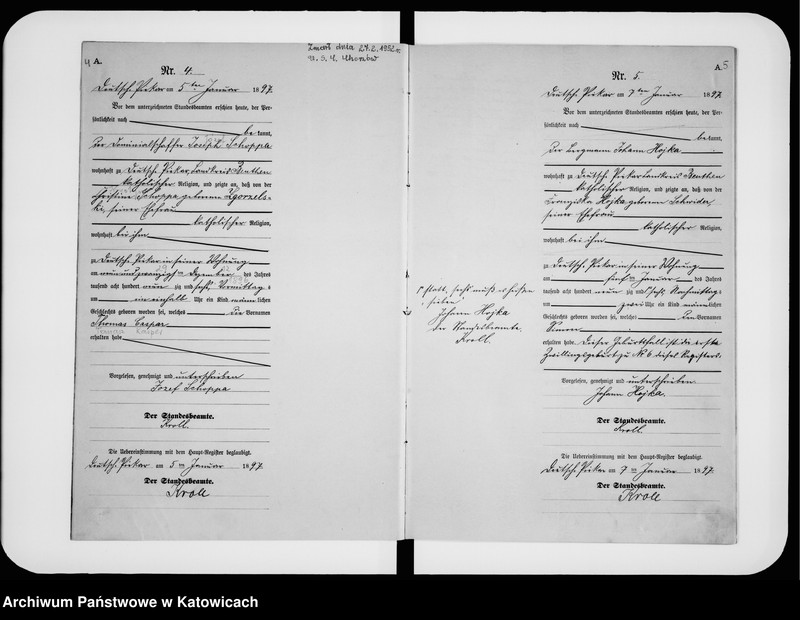 4 A.
Zmarł dnia 27.2.1952 r.
U.S.C. Chorzów
Nr. 4.
Deutsch Piekar am 5ten Januar 1897.
Vor dem unterzeichneten Standesbeamten erschien heute, der Per-
sönlichkeit nach
be kannt,
Der Dominialschaffer Joseph Schoppa
wohnhaft zu Deutsch Piekar Landkreis Beuthen
katholischer Religion, und zeigte an, daß von der
Christine Schoppa geborenen Zgorzels-
ki, seiner Ehefrau
katholischer Religion,
wohnhaft bei ihm
zu Deutsch Piekar in seiner Wohnung
am neunundzwanzigsten Dezember des Jahres
tausend acht hundert neun zig und sechs Vormittag s
um ein einhalb Uhr ein Kind männlichen
Geschlechts geboren worden sei, welches die Vornamen
Thomas Caspar
erhalten habe
Vorgelesen, genehmigt und unterschrieben
Jozef Schoppa
Der Standesbeamte.
Kroll.
Die Uebereinstimmung mit dem Haupt-Register beglaubigt.
Deutsch Piekar am 5ten Januar 1897.
Der Standesbeamte.
Kroll
A. 5
Nr. 5.
Deutsch Piekar am 7ten Januar 1897.
Vor dem unterzeichneten Standesbeamten erschien heute, der Per-
sönlichkeit nach
bekannt,
Der Bergmann Johann Hojka
wohnhaft zu Deutsch Piekar Landkreis Beuthen
katholischer Religion, und zeigte an, daß von der
Franziska Hojka geborenen Schwider,
seiner Ehefrau
katholischer Religion,
wohnhaft bei ihm
zu Deutsch Piekar in seiner Wohnung
am fünften Januar des Jahres
tausend acht hundert neun zig und sechs Nachmittags
um zwei Uhr ein Kind männlichen
Geschlechts geboren worden sei, welches den Vornamen
Simon
erhalten habe. Dieser Geburtsfall ist die erste
Zwillingsgeburt zu Nr. 6 dieses Registers.
statt "sechs" muß es heißen
"sieben"
Johann Hojka
Der Standesbeamte.
Kroll.
Vorgelesen, genehmigt und unterschrieben
Johann Hojka.
Der Standesbeamte.
Kroll.
Die Uebereinstimmung mit dem Haupt-Register beglaubigt.
Deutsch Piekar am 7ten Januar 1897.
Der Standesbeamte.
Kroll
Archiwum Państwowe w Katowicach